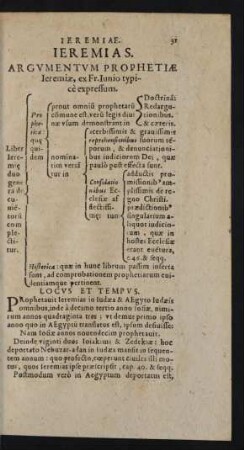 IEREMIAE.
IEREMIAS.
ARGVMENTVM PROPHETIÆ
Ieremiæ, ex Fr. Iunio typi-
cè expressum.
Liber
Iere-
miæ
duo
gene-
ra do-
cu-
men-
torũ
com-
ple-
cti-
tur.
Pro
phe-
tica:
quæ
qui-
dem
prout omniũ prophetarũ
nomina-
tim verſã
tur in
Doctrinâ:
Redargu-
tionibus,
& cæteris.
acerbiſſimis & grauiſſimis
reprehenſionibus ſuorum tẽ-
porum, & denunciationi-
bus iudiciorum Dei, quæ
paulò poſt effecta ſunt.
Conſolatio
nibus Ec-
cleſiæ af
flictiſſi-
mæ tum
adductis pro-
miſſionib⁹ am-
pliſſimis de re-
gno Chriſti.
prædictionib⁹
ſingularium a-
liquot iudicio-
rum, quæ in
hoſtes Eccleſiæ
erant euētura,
c. 46. & ſeqq.
Hiſtorica: quæ in hunc librum paſſim inſerta
ſunt, ad comprobationem prophetiarum eui-
dentiamque pertinent.
LOCVS ET TEMPVS.
Prophetauit Ieremias in Iudæa & Ægypto Iudæis
omnibus, inde à decimo tertio anno Ioſiæ, nimi-
rum annos quadraginta tres; vt demus primo ipſo
anno quo in Ægyptũ tranſlatus eſt, ipſum deſiiſſe:
Nam Ioſiæ annos nouendecim prophetauit.
Deinde viginti duos Ioiakimi & Zedekiæ: hoc
deportato Nebuzar-adan in Iudæa manſit in ſequen-
tem annum: quo profectò, reperunt ciuiles illi mo-
tus, quos Ieremias ipſe præſcripſit, cap. 40. & ſeqq.
Poſtmodum verò in Ægyptum deportatus eſt,